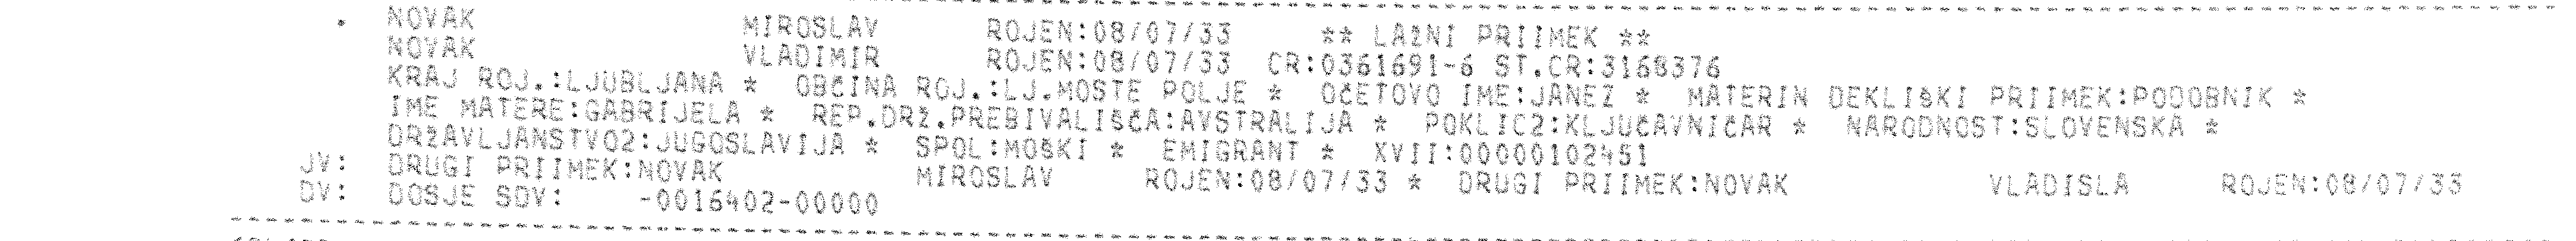 . NOVAK MIROSLAV ROJEN:08/07/33 ** LAŽNI PRIIMEK **
NOVAK VLADIMIR ROJEN:08/07/33 CR:0361691-6 ST.CR:3168376
KRAJ ROJ.:LJUBLJANA * OBČINA ROJ.:LJ.MOSTE POLJE * OČETOVO IME:JANEZ * MATERIN DEKLIŠKI PRIIMEK:PODOBNIK *
IME MATERE:GABRIJELA * REP.DRŽ.PREBIVALIŠČA:AVSTRALIJA * POKLIC2:KLJUČAVNIČAR * NARODNOST:SLOVENSKA *
DRŽAVLJANSTVO2:JUGOSLAVIJA * SPOL:MOŠKI * EMIGRANT * XVII:00000102451
JV: DRUGI PRIIMEK:NOVAK MIROSLAV ROJEN:08/07/33 * DRUGI PRIIMEK:NOVAK VLADISLA ROJEN:08/07/33
DV: DOSJE SDV: -0016402-00000